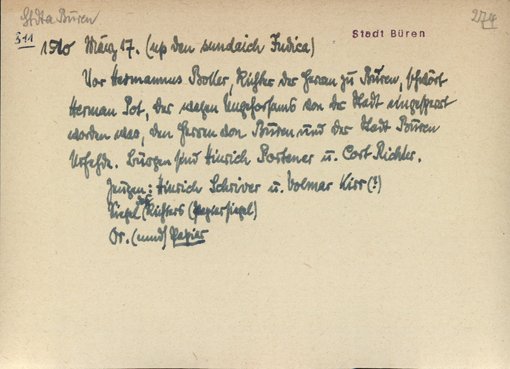 StdtA Büren
274
Stadt Büren
311
1510 März 17. (up den sundach Judica)
Vor Hermannus Boller, Richter der Herren zu Büren, schwört
Herman Pot, der wegen Ungehorsams von der Stadt eingesperrt
worden war, den Herren von Büren und der Stadt Büren
Urfehde. Bürgen sind Hinrich Portener u. Cort Richter.
Zeugen: Hinrich Schriver u. Volmar Kirs (?)
Siegel des Richters (Papiersiegel)
Or. (nnd) Papier